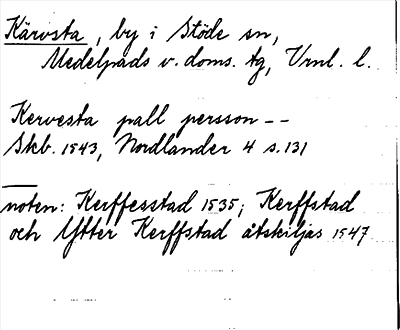 Kärvsta, by i Stöde sn,
Medelpads v. doms. tg, Vrnl. l.
Kervesta pall persson --
Skb. 1543, Nordlander 4 s. 131
noten: Kerffesstad 1535; Kerffstad
och Ytter Kerffstad åtskiljas 1547